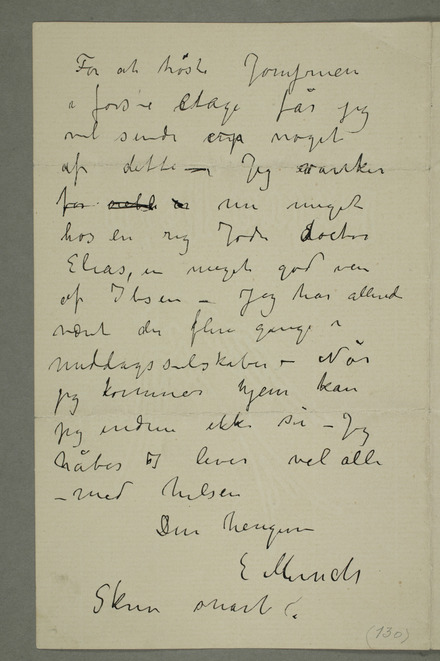 For at trøste Jomfruen
i første Etage får jeg
vel sende noget
af dette – Jeg vanker
for nu meget
hos en rig Jøde doctor
Elias, en meget god ven
af Ibsen – Jeg har allerede
vært der flere gange i
middagsselskaber – Når
jeg kommer hjem kan
jeg endnu ikke si – Jeg
håber I lever vel alle
– med hilsen
Din hengivne
E Munch
Skriv snart
(130)